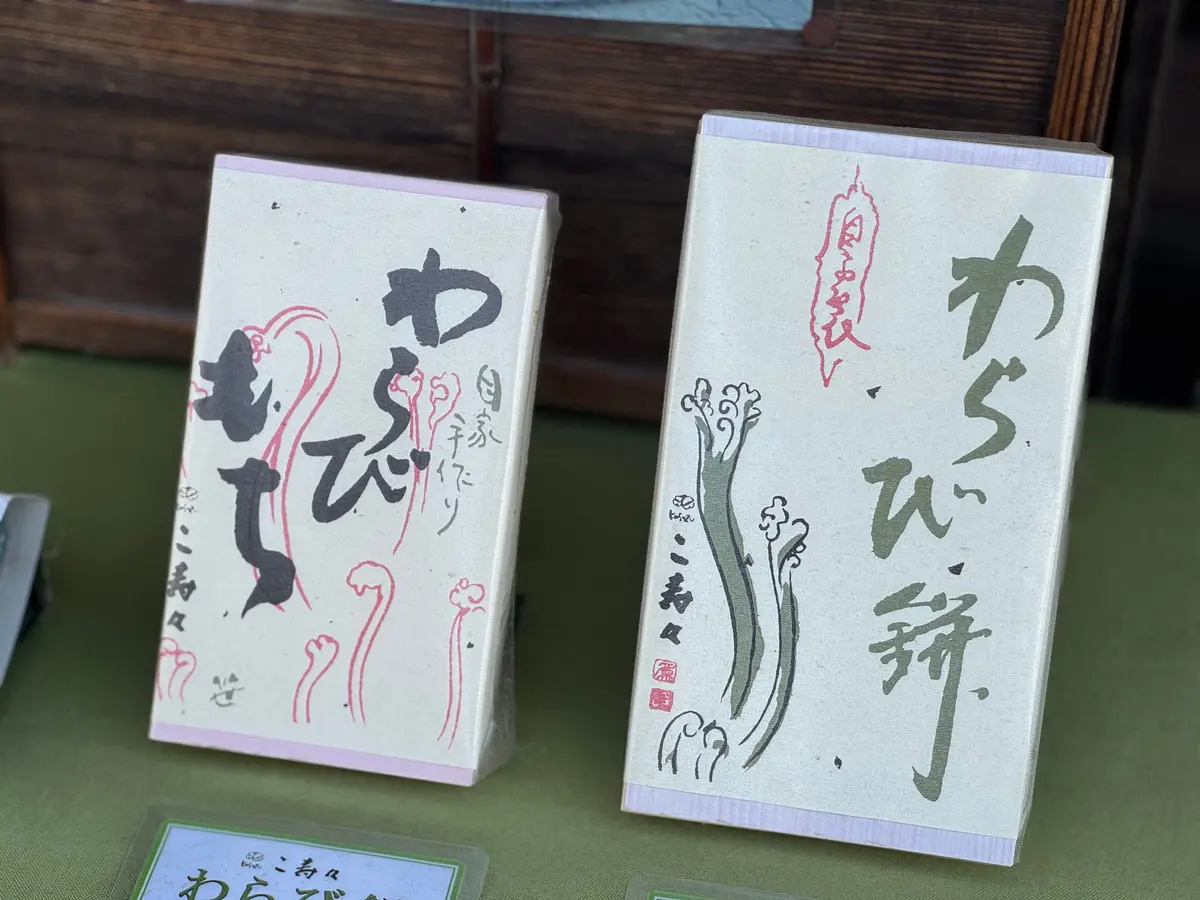 わらび
もち
自家
手作り
こ寿々
笹
わらび餅
自家製
こ寿々
こ寿々
わらび餅